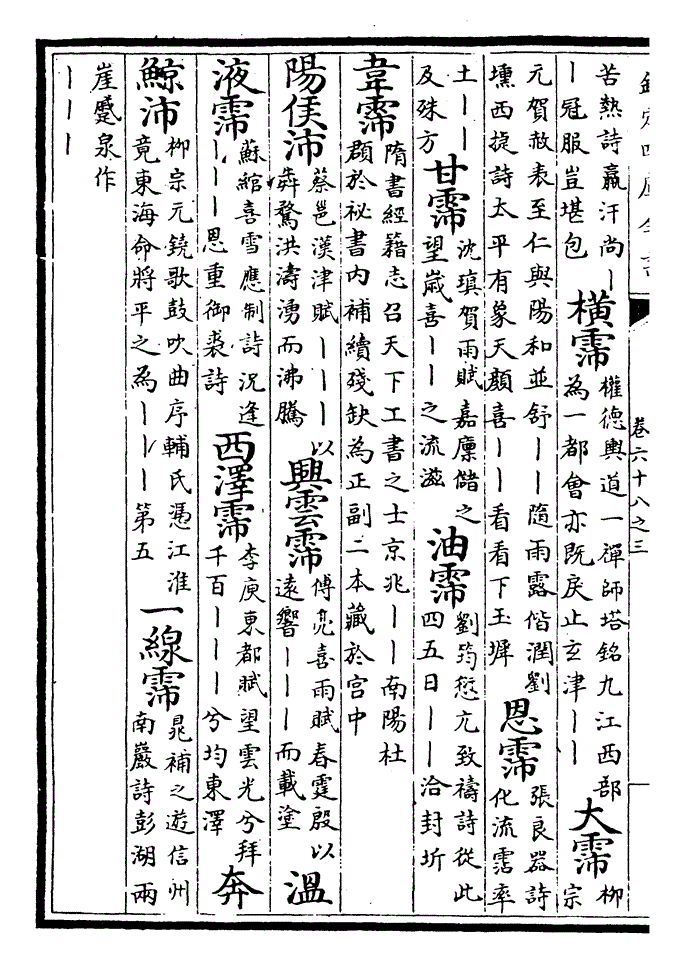 欽定四庫全書
卷六十八之三
苦熱詩羸汗尚丨
丨冠服豈堪包
橫霈
權德輿道一禪師塔銘九江西部
為一都會亦既戾止玄津丨丨
大霈
柳
宗
元賀赦表至仁與陽和並舒丨丨隨雨露偕潤劉
壎西捷詩太平有象天顏喜丨丨看看下玉墀
恩霈
張良器詩
化流霑率
土丨丨
及殊方
甘霈
沈瑱賀雨賦嘉廩儲之
望歲喜丨丨之流滋
油霈
劉筠愆亢致禱詩從此
四五日丨丨洽封圻
韋霈
隋書經籍志召天下工書之士京兆丨丨南陽杜
頵於祕書內補續殘缺為正副二本藏於宮中
陽侯沛
蔡邕漢津賦丨丨丨以
犇騖洪濤湧而沸騰
興雲霈
傅亮喜雨賦春霆殷以
遠響丨丨丨而載塗
溫
液霈
蘇綰喜雪應制詩況逢
丨丨丨恩重御裘詩
西澤霈
李庾東都賦望雲光兮拜
千百丨丨丨兮均東澤
奔
鯨沛
柳宗元鐃歌鼓吹曲序輔氏憑江淮
竟東海命將平之為丨丨丨第五
一線霈
晁補之遊信州
南巖詩彭湖兩
崖蹙泉作
丨丨丨